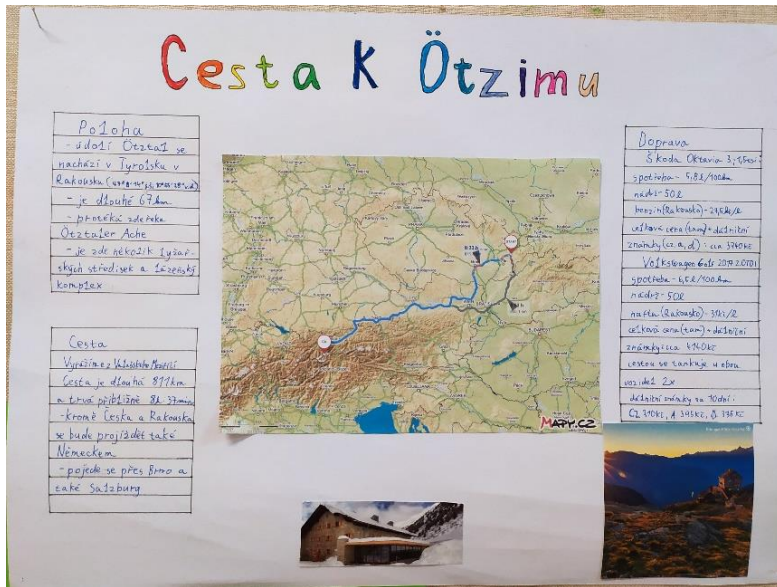 Cesta K Ötzimu
Poloha
- údolí Ötztal se
nachází v Tyrolsku v
Rakousku
- je dlouhé 67km
- protéká zde řeka
Ötztaler Ache
- je zde několik lyžař-
ských středisek a lázeňský
komplex
Cesta
Vyrážíme z Valašského Meziříčí
Cesta je dlouhá 811km
a trvá přibližně 8h 37min
- kromě Česka a Rakouska
se bude projíždět také
Německem
- pojede se přes Brno a
také Salzburg
MAPY.CZ
Doprava
Škoda Oktavia 3
spotřeba - 5,8l/100km
nádrž - 50l
benzín (Rakousko)
celková cena (tam) + dálniční
známky (cz, a, d) : cca 3740 Kč
Volkswagen Golf 2017 2.0TDI
spotřeba - 6,5l/100km
nádrž - 50l
nafta (Rakousko)
celková cena (tam) + dálniční
známky: cca 4140Kč
cestou se tankuje u obou
vozidel 2x
dálniční známky na 10dní :
CZ 310Kč, A